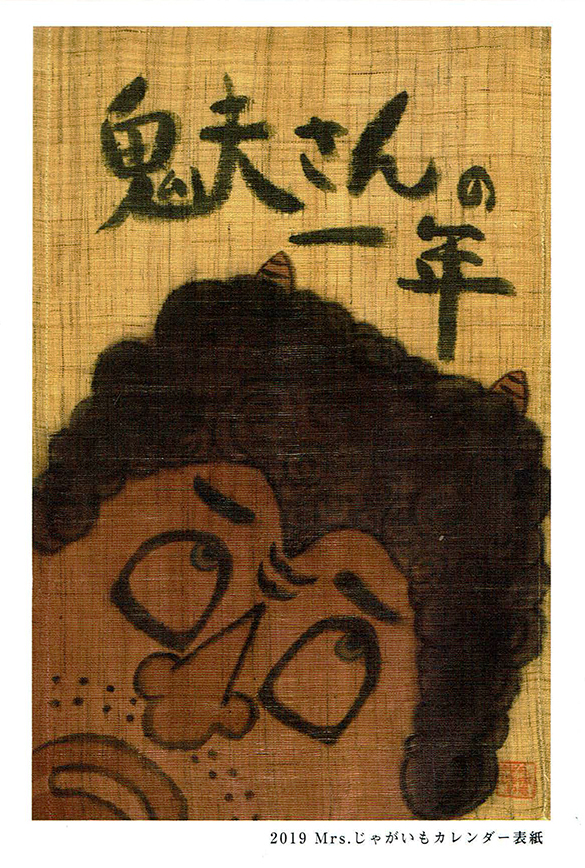 鬼夫さんの
一年
2019 Mrs.じゃがいもカレンダー表紙